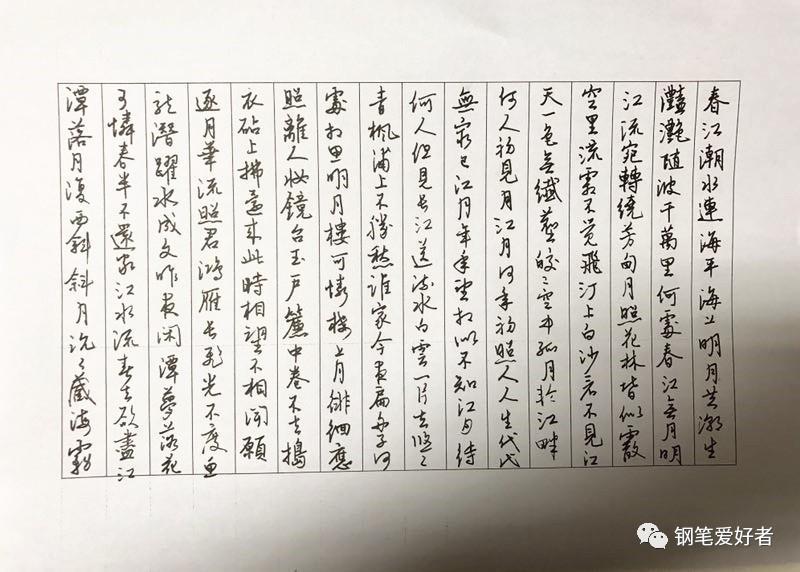 春江潮水連海平海上明月共潮生
灩灩随波千萬里何處春江無月明
江流宛轉繞芳甸月照花林皆似霰
空里流霜不觉飛汀上白沙看不見江
天一色無纖塵皎々空中孤月轮江畔
何人初見月江月何年初照人人生代代
無窮已江月年年望相似不知江月待
何人但見长江送流水白雲一片去悠々
青楓浦上不勝愁谁家今夜扁舟子何
處相思明月樓可憐楼上月徘徊應
照離人妆鏡台玉户簾中卷不去搗
衣砧上拂還来此時相望不相闻願
逐月華流照君鴻雁长飞光不度鱼
龙潜躍水成文昨夜闲潭夢落花
可憐春半不還家江水流春去欲盡江
潭落月復西斜斜月沉々藏海霧
钢笔爱好者